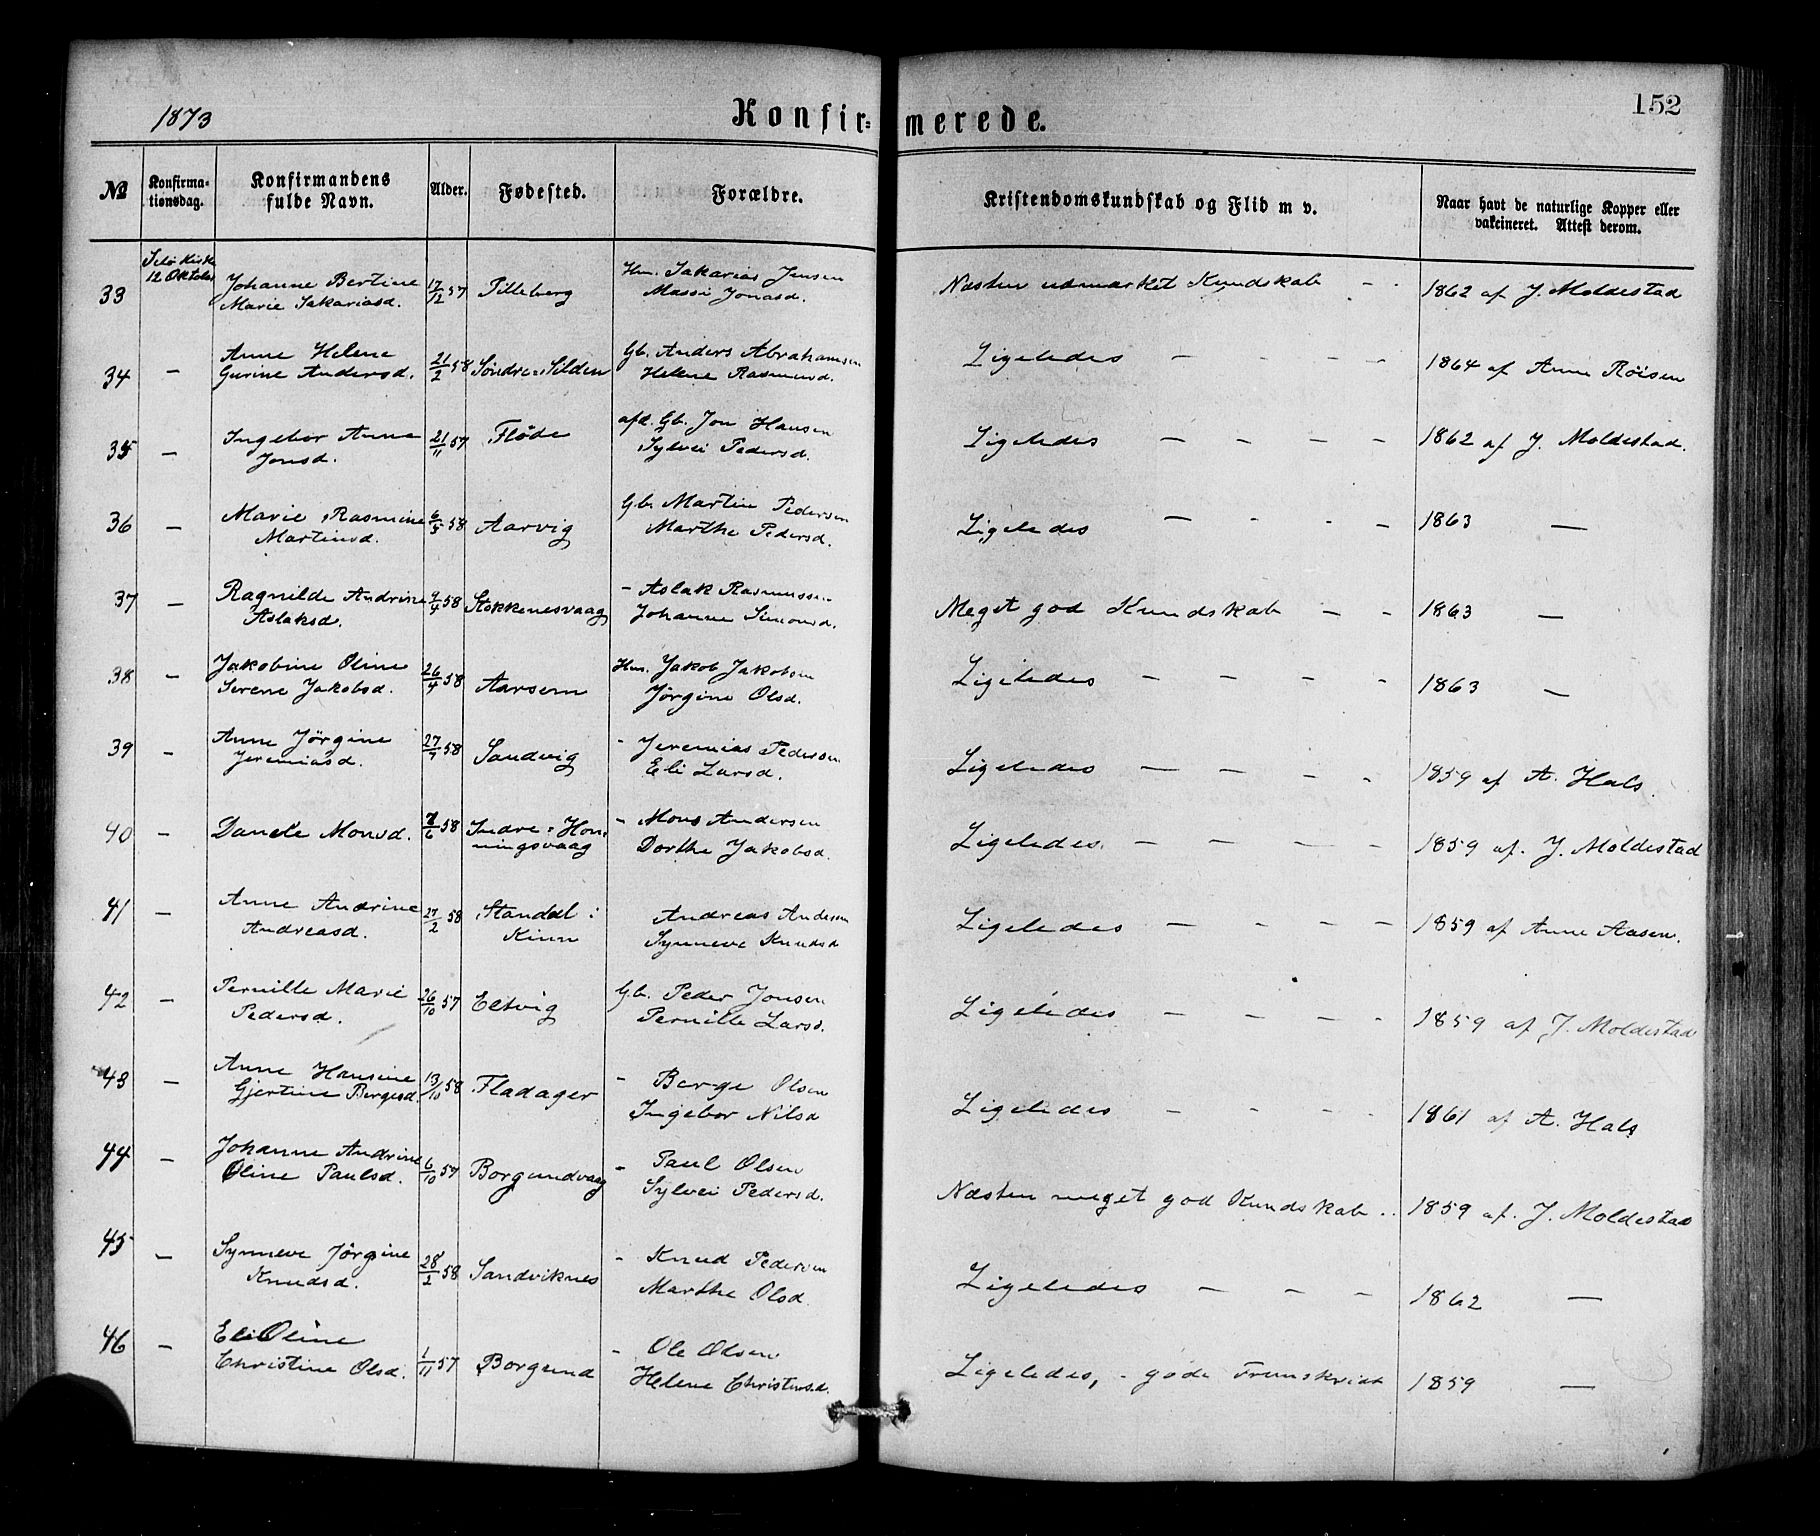 1873
Konfirmerede.
152
№
Konfirma-
tionsdag.
Konfirmandens
fulde Navn.
Alder.
Fødested.
Forældre.
Kristendomskundskab og Flid m v.
Naar havt de naturlige Kopper eller
vakcineret. Attest derom.
33 12 Oktober Johanne Bertine 17/12 57 Hm. Sakarias Jensen Næsten udmærket Kundskab - - 1862 af J. Moldestad
Marie Sakariasd. Massi Jonasd.
34 — Anne Helene 21/2 58 Søndre-Silden Gb. Anders Abrahamsen Ligeledes — - - - 1864 af Anne Röisen
Gurine Andersd. Helene Rasmusd.
35 — Ingebor Anne 21/11 57 Flöde afd. Gb. Jon Hansen Ligeledes — — — — 1862 af J. Moldestad.
Jonsd. Sylvei Pedersd.
36 — Marie Rasmine 6/5 58 Aarvig Gb. Martin Pedersen Ligeledes — - - - 1863 —
Martinsd. Marthe Pedersd.
37 — Ragnilde Andrine 9/4 58 Stokkenesvaag - Aslak Rasmussen Meget god Kundskab — - 1863 —
Aslaksd. Johanne Simonsd.
38 — Jakobine Oline 26/4 58 Aarsem Hm. Jakob Jakobsen Ligeledes — - - - 1863 —
Serene Jakobsd. Jörgine Olsd.
39 - Anne Jörgine 27/7 58 Sandvig - Jeremias Pedersen Ligeledes — — - - 1859 af A. Hals.
Jeremiasd. Eli Larsd.
40 - Danele Monsd. 7/6 58 Indre-Hon- - Mons Andersen Ligeledes. — — - - 1859 af. J. Moldestad
ningsvaag Dorthe Jakobsd.
41 — Anne Andrine 27/2 58 Standal i Andreas Andersen Ligeledes — - - - 1859 af Anne Aasen.
Andreasd. Kinn Synneve Knudsd
42 — Pernille Marie 26/10 57 Eltvig Gb. Peder Jonsen Ligeledes — - - - 1859 af J. Moldestad
Pedersd. Pernille Larsd.
43 — Anne Hansine 13/10 58 Fladager - Berge Olsen Ligeledes - - - - 1861 af A. Hals
Gjertine Bergesd. Ingebor Nilsd
44 — Johanne Andrine 6/10 57 Borgundvaag - Paul Olsen Næsten meget god Kundskab .. 1859 af. J. Moldestad
Oline Paulsd. Sylvei Pedersd.
45 — Synneve Jörgine 28/2 58 Sandviknes - Knud Pedersen Ligeledes — - - - 1862 —
Knudsd. Marthe Olsd.
46 — Eli Oline 1/11 57 Borgund - Ole Olsen Ligeledes, - gode Fremskridt 1859 —
Christine Olsd. Helene Christensd.